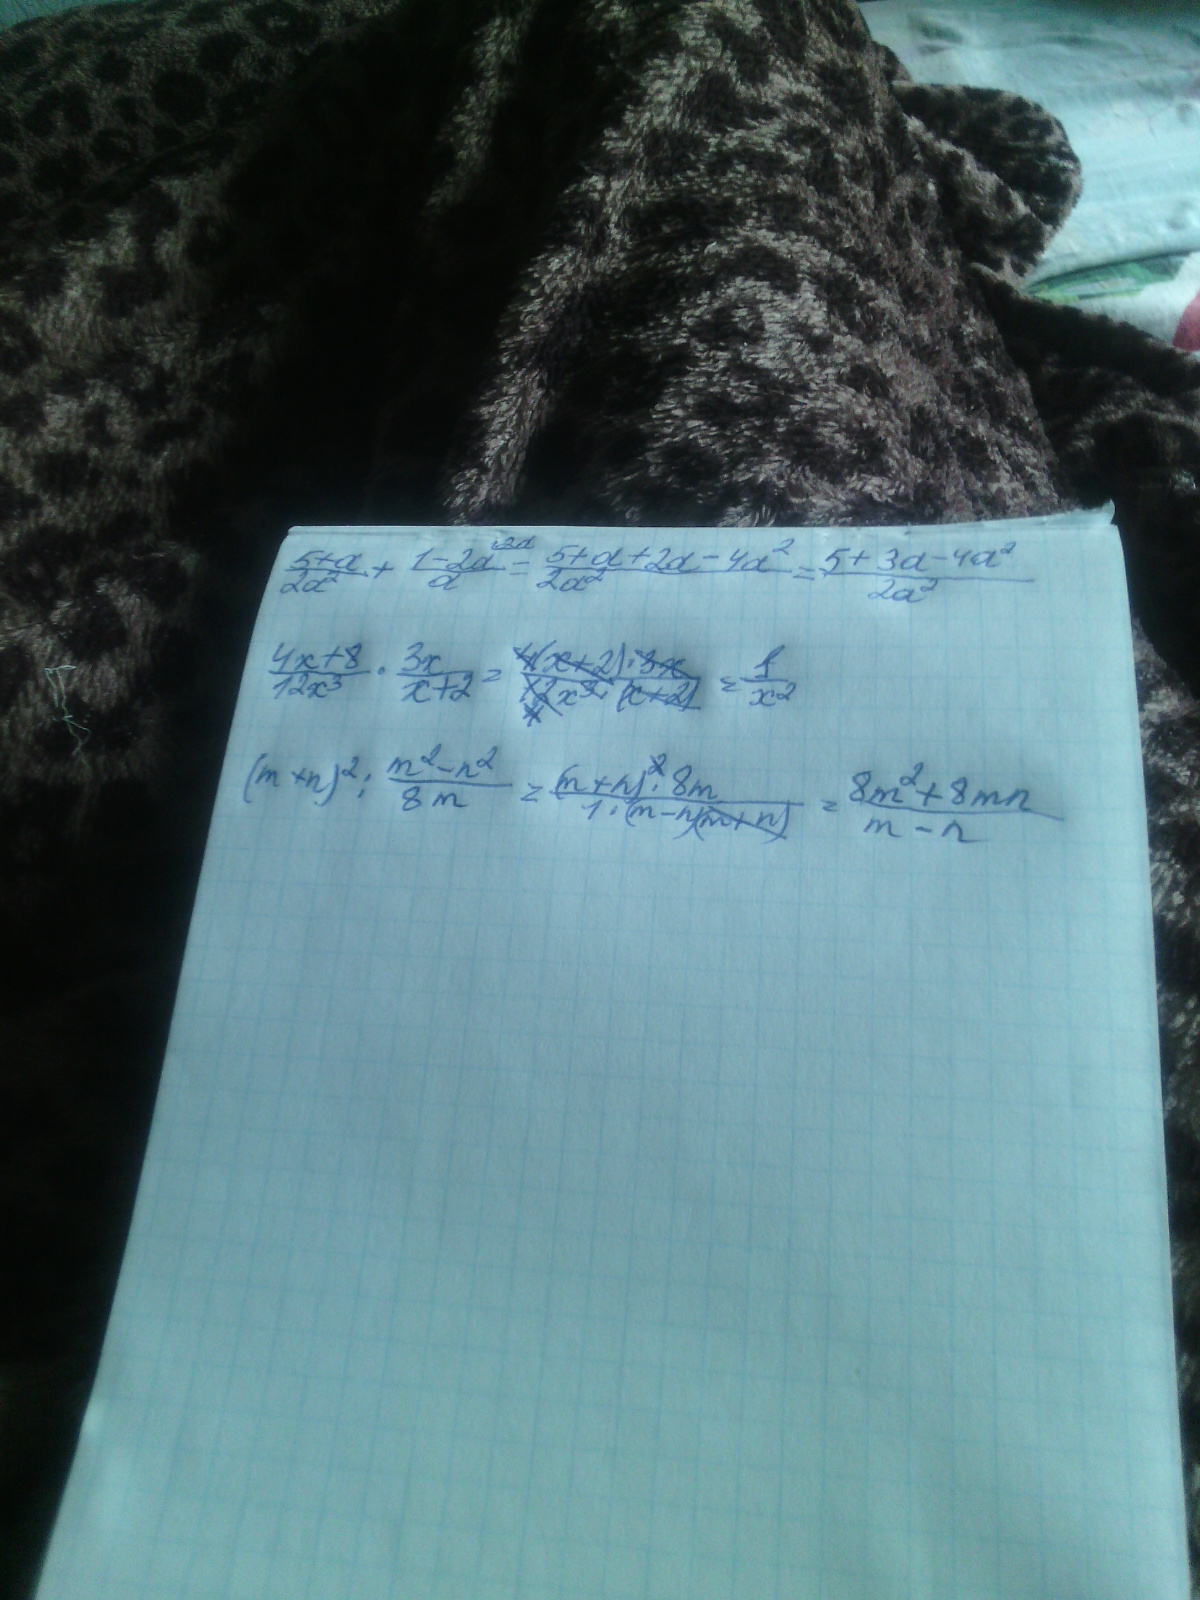 (5+a)/(2a²) + (1-2a)/a ·2a = (5+a+2a-4a²)/(2a²) = (5+3a-4a²)/(2a²)
(4x+8)/(12x³) · 3x/(x+2) = (4(x+2)·3x)/(12x³·(x+2)) = 1/x²
(m+n)² : (m²-n²)/(8m) = ((m+n)²·8m)/(1·(m-n)(m+n)) = (8m²+8mn)/(m-n)